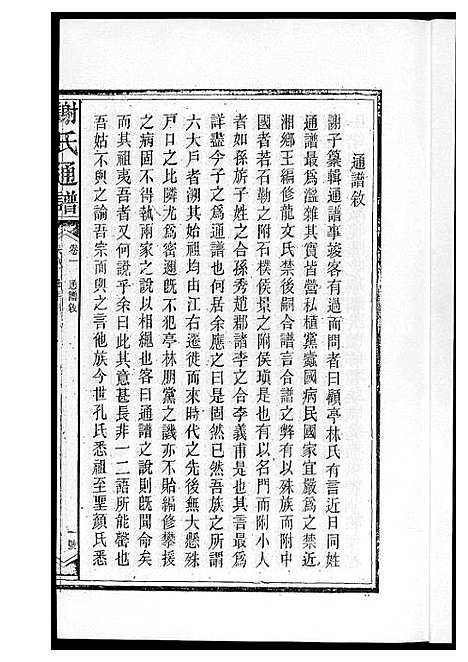 通譜敘
謝子纂輯通譜事竣客有過而問者曰顧亭林氏有言近日同姓
通譜最爲濫雜其實皆營私植黨蠹國病民國家宜嚴爲之禁近
湘鄉王編修龍文氏禁後嗣合譜言合譜之弊有以殊族而附中
國者若石勒之附石樸侯景之附侯瑱是也有以名門而附小人
者如孫旂子姓之合孫秀趙郡諸李之合李義甫是也言最爲
詳盡今子之爲通譜也何居余應之曰是固然已然吾族之所謂
六大戶者溯其始祖均由江右遷徙而來時代之先後無大懸殊
戶口之比隣尤爲密邇旣不犯亭林朋黨之譏亦不貽編修攀援
之病固不得執兩家之說以相繩也客曰通譜之說則旣聞命矣
而其祖夷吾者又何說乎余曰此其意甚長非一二語所能罄也
吾姑不與之諭吾宗而與之言他族今世孔氏悉祖至聖顏氏悉
謝氏通譜
卷一
通譜敘
一